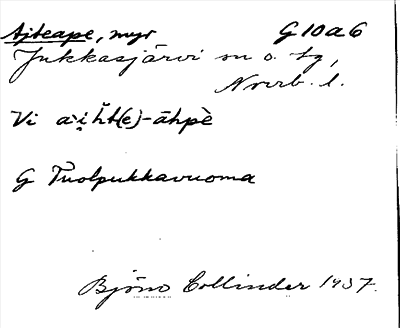 Ajteape, myr G 10 a 6
Jukkasjärvi sn o. tg,
Norrb. l.
Vi
G Tuolpukkavuoma
Björn Collinder 1937.